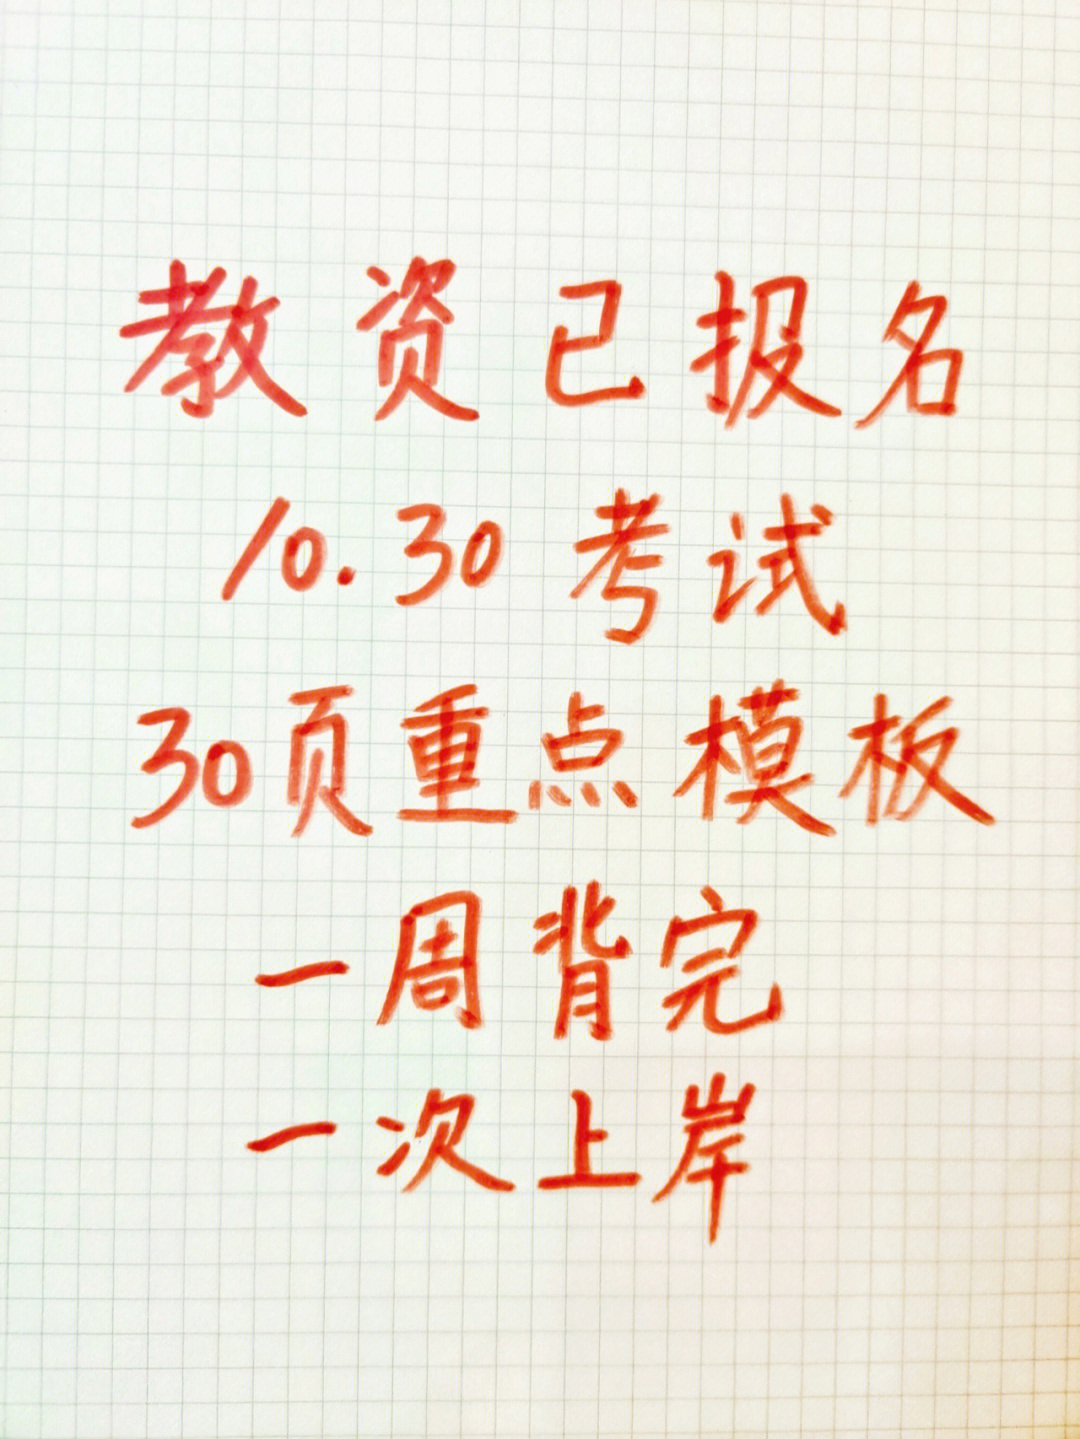 教资已报名
10.30考试
30页重点模板
一周背完
一次上岸